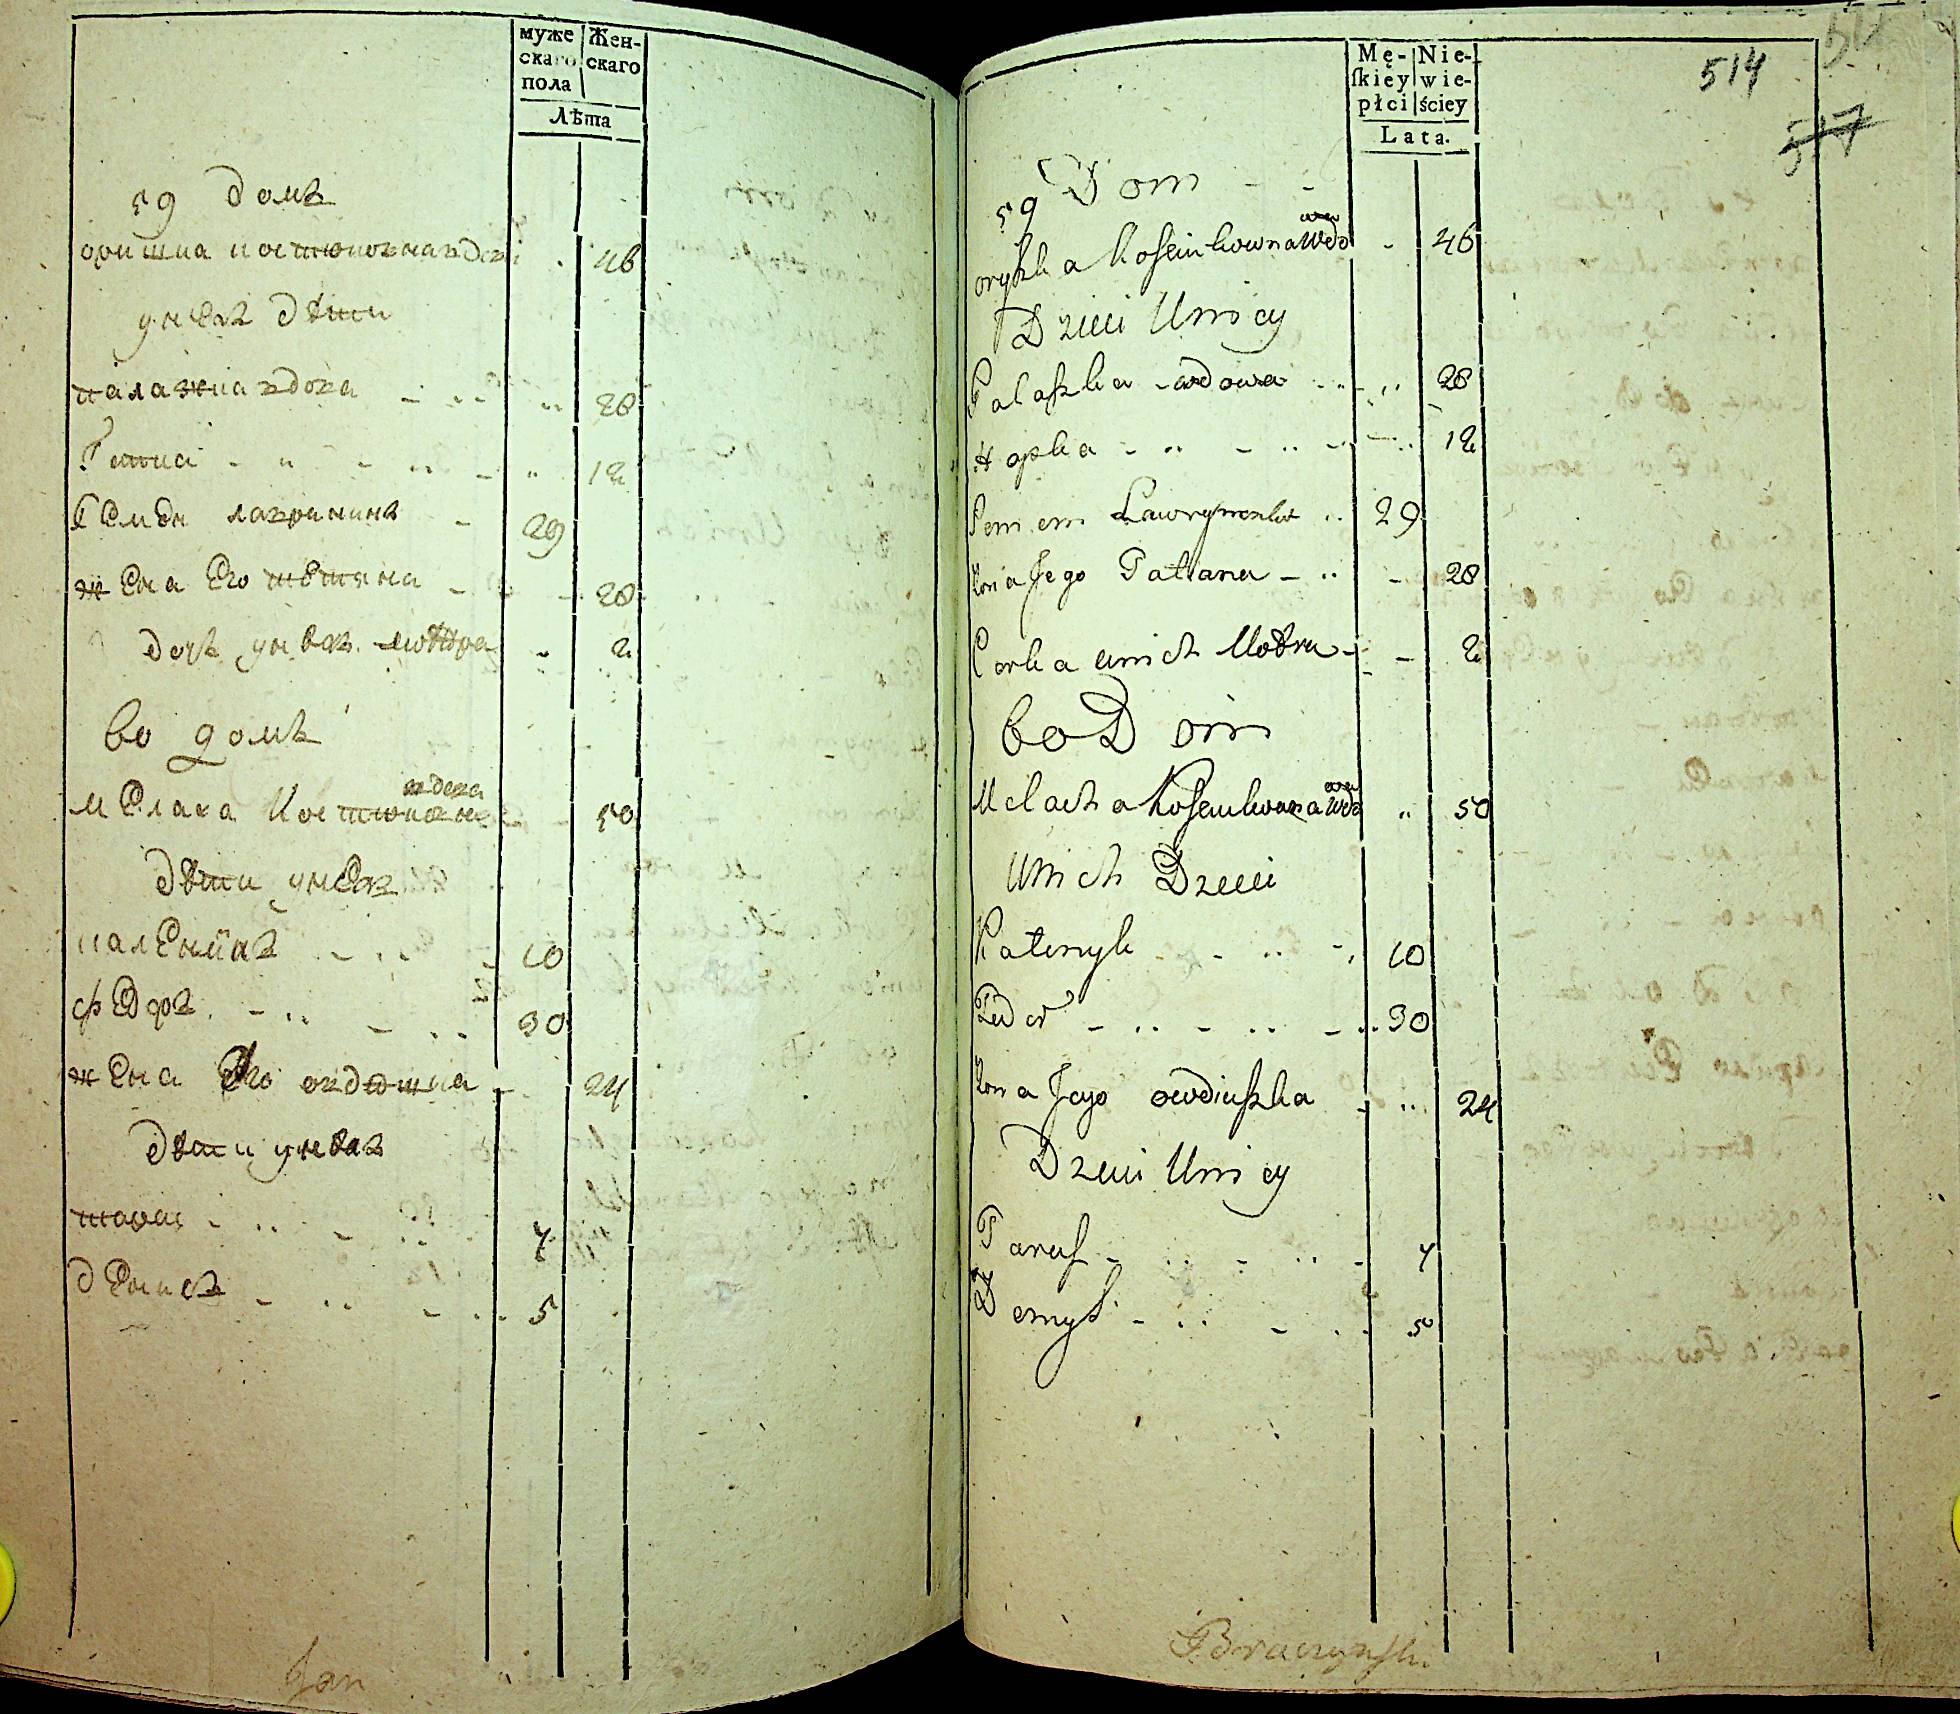 муже
скаго
пола
Жен-
скаго
Лѣта
59 домъ
оришка костюковна вдова 46
у неѣ дѣти
палажка вдова 28
Гапка 12
Семен лаврининъ 29
жена Его тетяна 28
дочъ у нихъ мотра 2
60 домъ
вдова
мЕлаха Костюковна 50
дѣти у неѣ
калЕникъ 10
фЕдоръ 30
жена Его овдюшка 24
дѣти у нихъ
тарас 7
дЕнисъ 5
Jan
Mę-
ſkiey
płci
Nie-
wie-
ściey
Lata.
514
517
59 Dom
wa
oryszka Koſciukowna Wdo 46
Dzieci U niey
Palaszka wdowa 28
Hapka 12
Semen Lawrynenko 29
Żona Jego Tatiana 28
Corka u nich Motra 2
60 Dom
wa
Melacha Koſciukowna Wdo 50
U nich Dzieci
Kalenyk 10
Fedor 30
Żona Jego owdiuszka 24
Dzieci U niey
Taraſ 7
Denyſ 5
Braczynſki